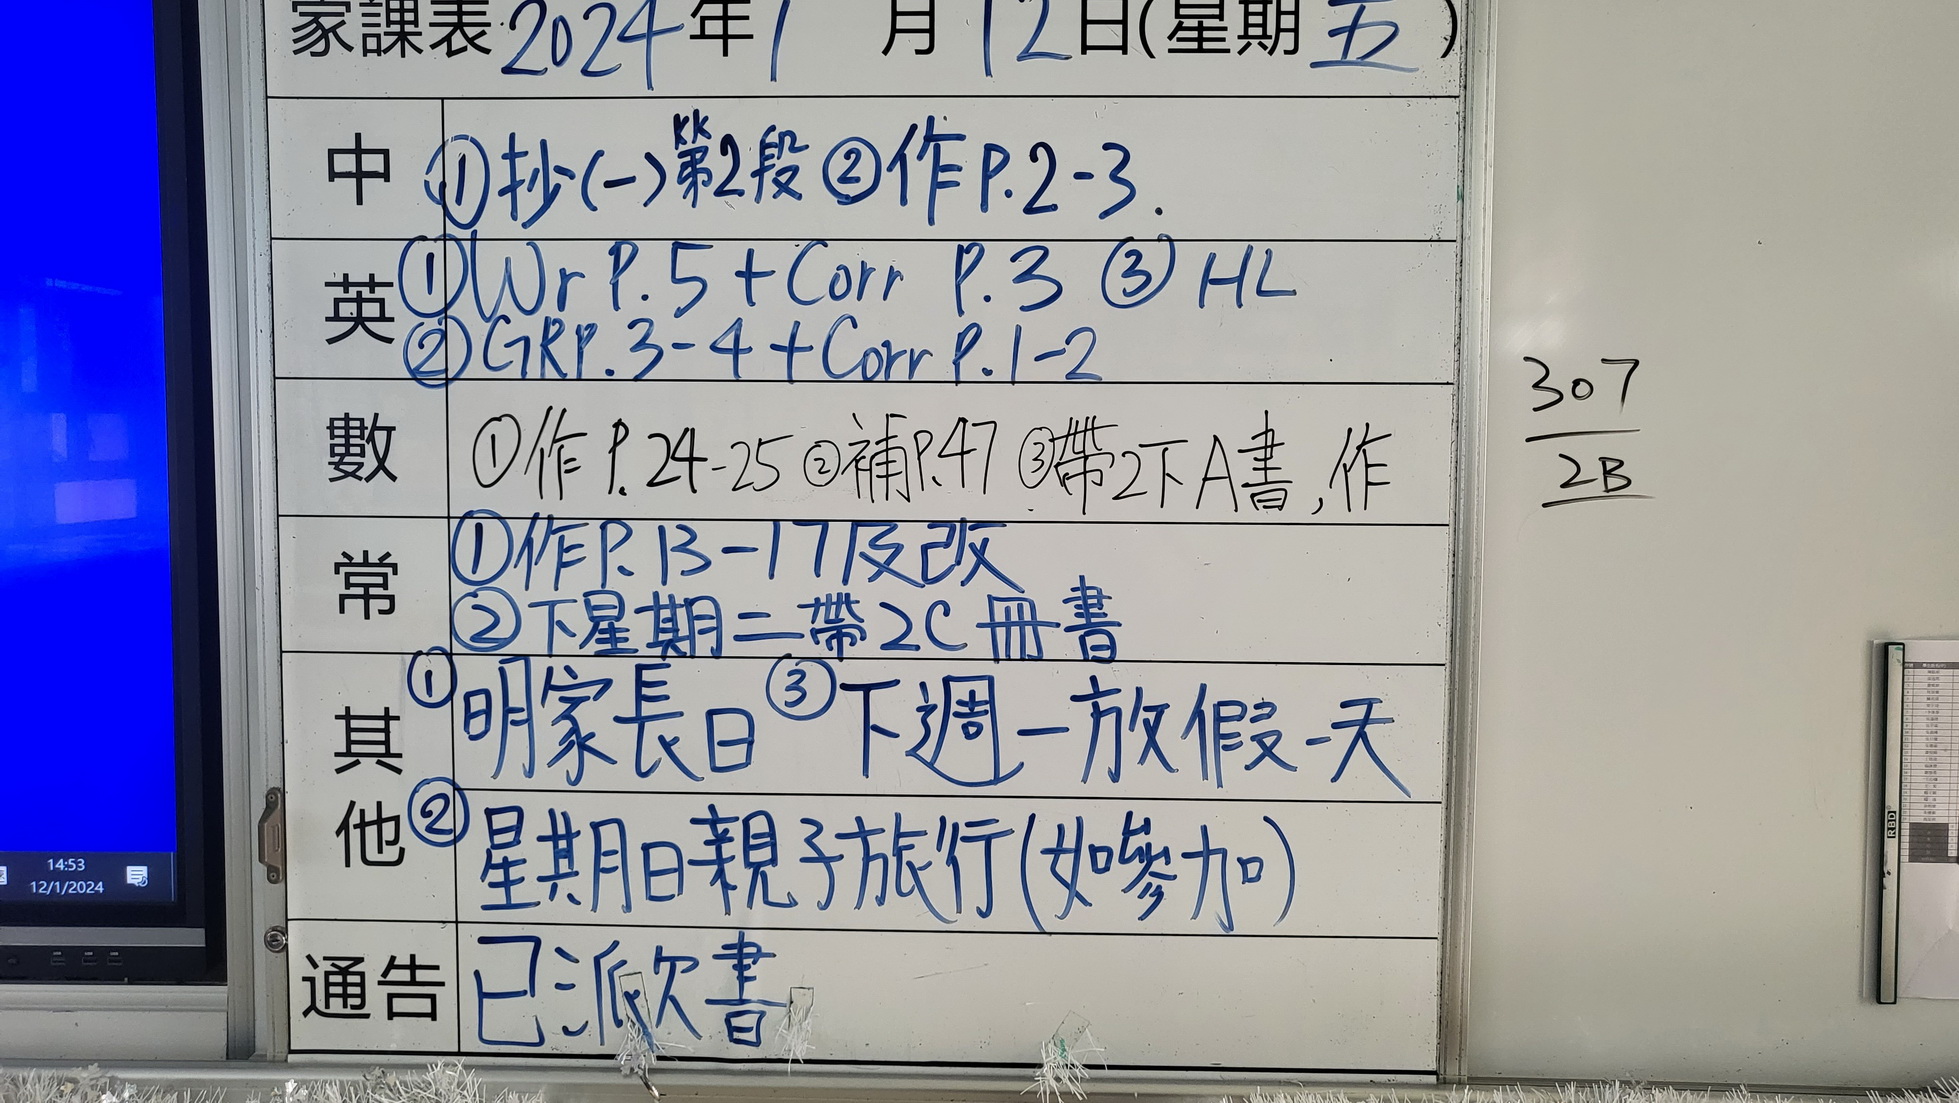 家課表 2024年1月12日(星期五)
中 ①抄(一)第2段 ②作P.2-3.
英 ①Wr P.5 + Corr P.3 ③ HL
②GRP.3-4 + Corr P.1-2
數 ①作P.24-25 ②補P.47 ③帶2下A書,作
常 ①作P.13-17及改
②下星期二帶2C冊書
其他 ①明家長日 ③下週一放假一天
②星期日親子旅行(如參加)
通告 已派欠書
307
2B
14:53
12/1/2024
RBD